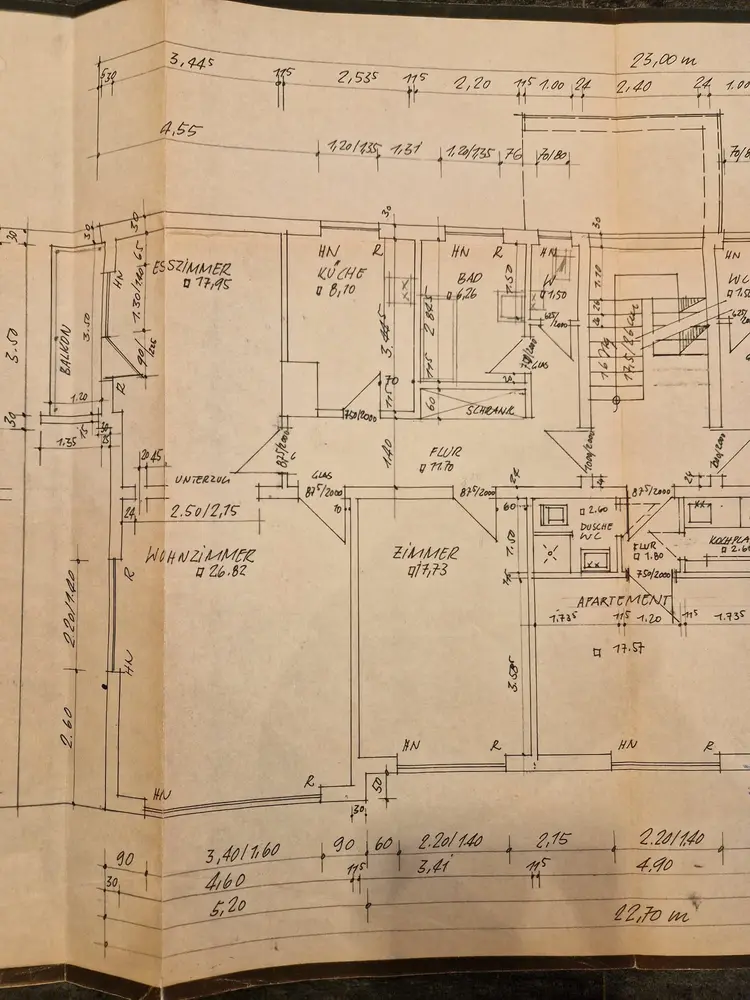 23,00 m
3,445
11⁵
2,53⁵
11⁵
2,20
11⁵
1.00
24
2,40
24
1.00
4,55
1,20/1,35
1,31
1,20/1,35
76
70/80
70/8
30
30
30
30
65
HN
ESSZIMMER
17,95
HN
R
KÜCHE
8,10
HN
R
BAD
6,26
1.50
HN
1,50
HN
WC
3.50
BALKON
3.50
R
1.20
1.35
15
70
750/2000
11⁵
60
20
GLAS
SCHRANK
17,5/26 cm
30
20
45
UNTERZUG
24
2.50/2,15
87⁵/2000
GLAS
87⁵/2000
1.40
FLUR
11.70
87⁵/2000
24
87⁵/2000
24
10
60
WOHNZIMMER
26.82
ZIMMER
17,73
1.50
2.60
DUSCHE
WC
FLUR
1.80
750/2000
KOCHPLA
R
2.20/1.40
HN
2.60
APARTEMENT
1.73⁵
11⁵
1.20
11⁵
1.73⁵
17.57
3.58⁵
HN
R
HN
R
HN
R
50
30
90
3,40/1,60
90
60
2.20/1.40
2,15
2.20/1.40
30
4,60
11⁵
3,41
11⁵
4,90
5,20
22,70 m